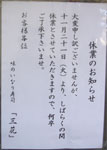 休業のお知らせ
大変申し訳ございませんが、
十一月二十一日（火）より、しばらくの間
休業とさせていただきますので、何卒
ご了承下さいませ。
お客様各位
味のいなり寿司
「三花」